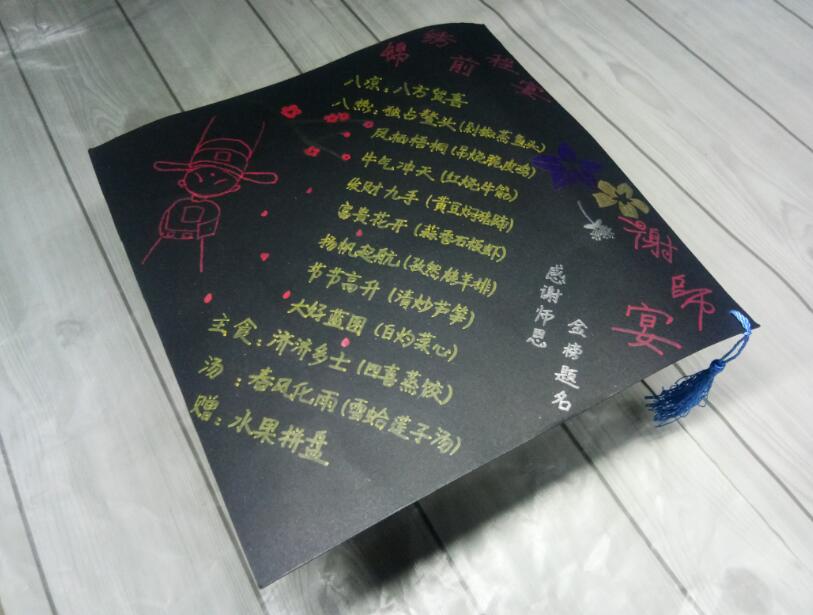 锦绣前程宴
八凉：八方贺喜
八热：独占鳌头(剁椒蒸鱼头)
凤栖梧桐(吊烧脆皮鸡)
牛气冲天(红烧牛筋)
发财九手(黄豆焖猪蹄)
富贵花开(蒜香石板虾)
扬帆起航(孜然酥羊排)
节节高升(清炒芦笋)
大好蓝图(白灼菜心)
主食：济济多士(四喜蒸饺)
汤：春风化雨(雪蛤莲子汤)
赠：水果拼盘
感谢师恩
金榜题名
謝師宴